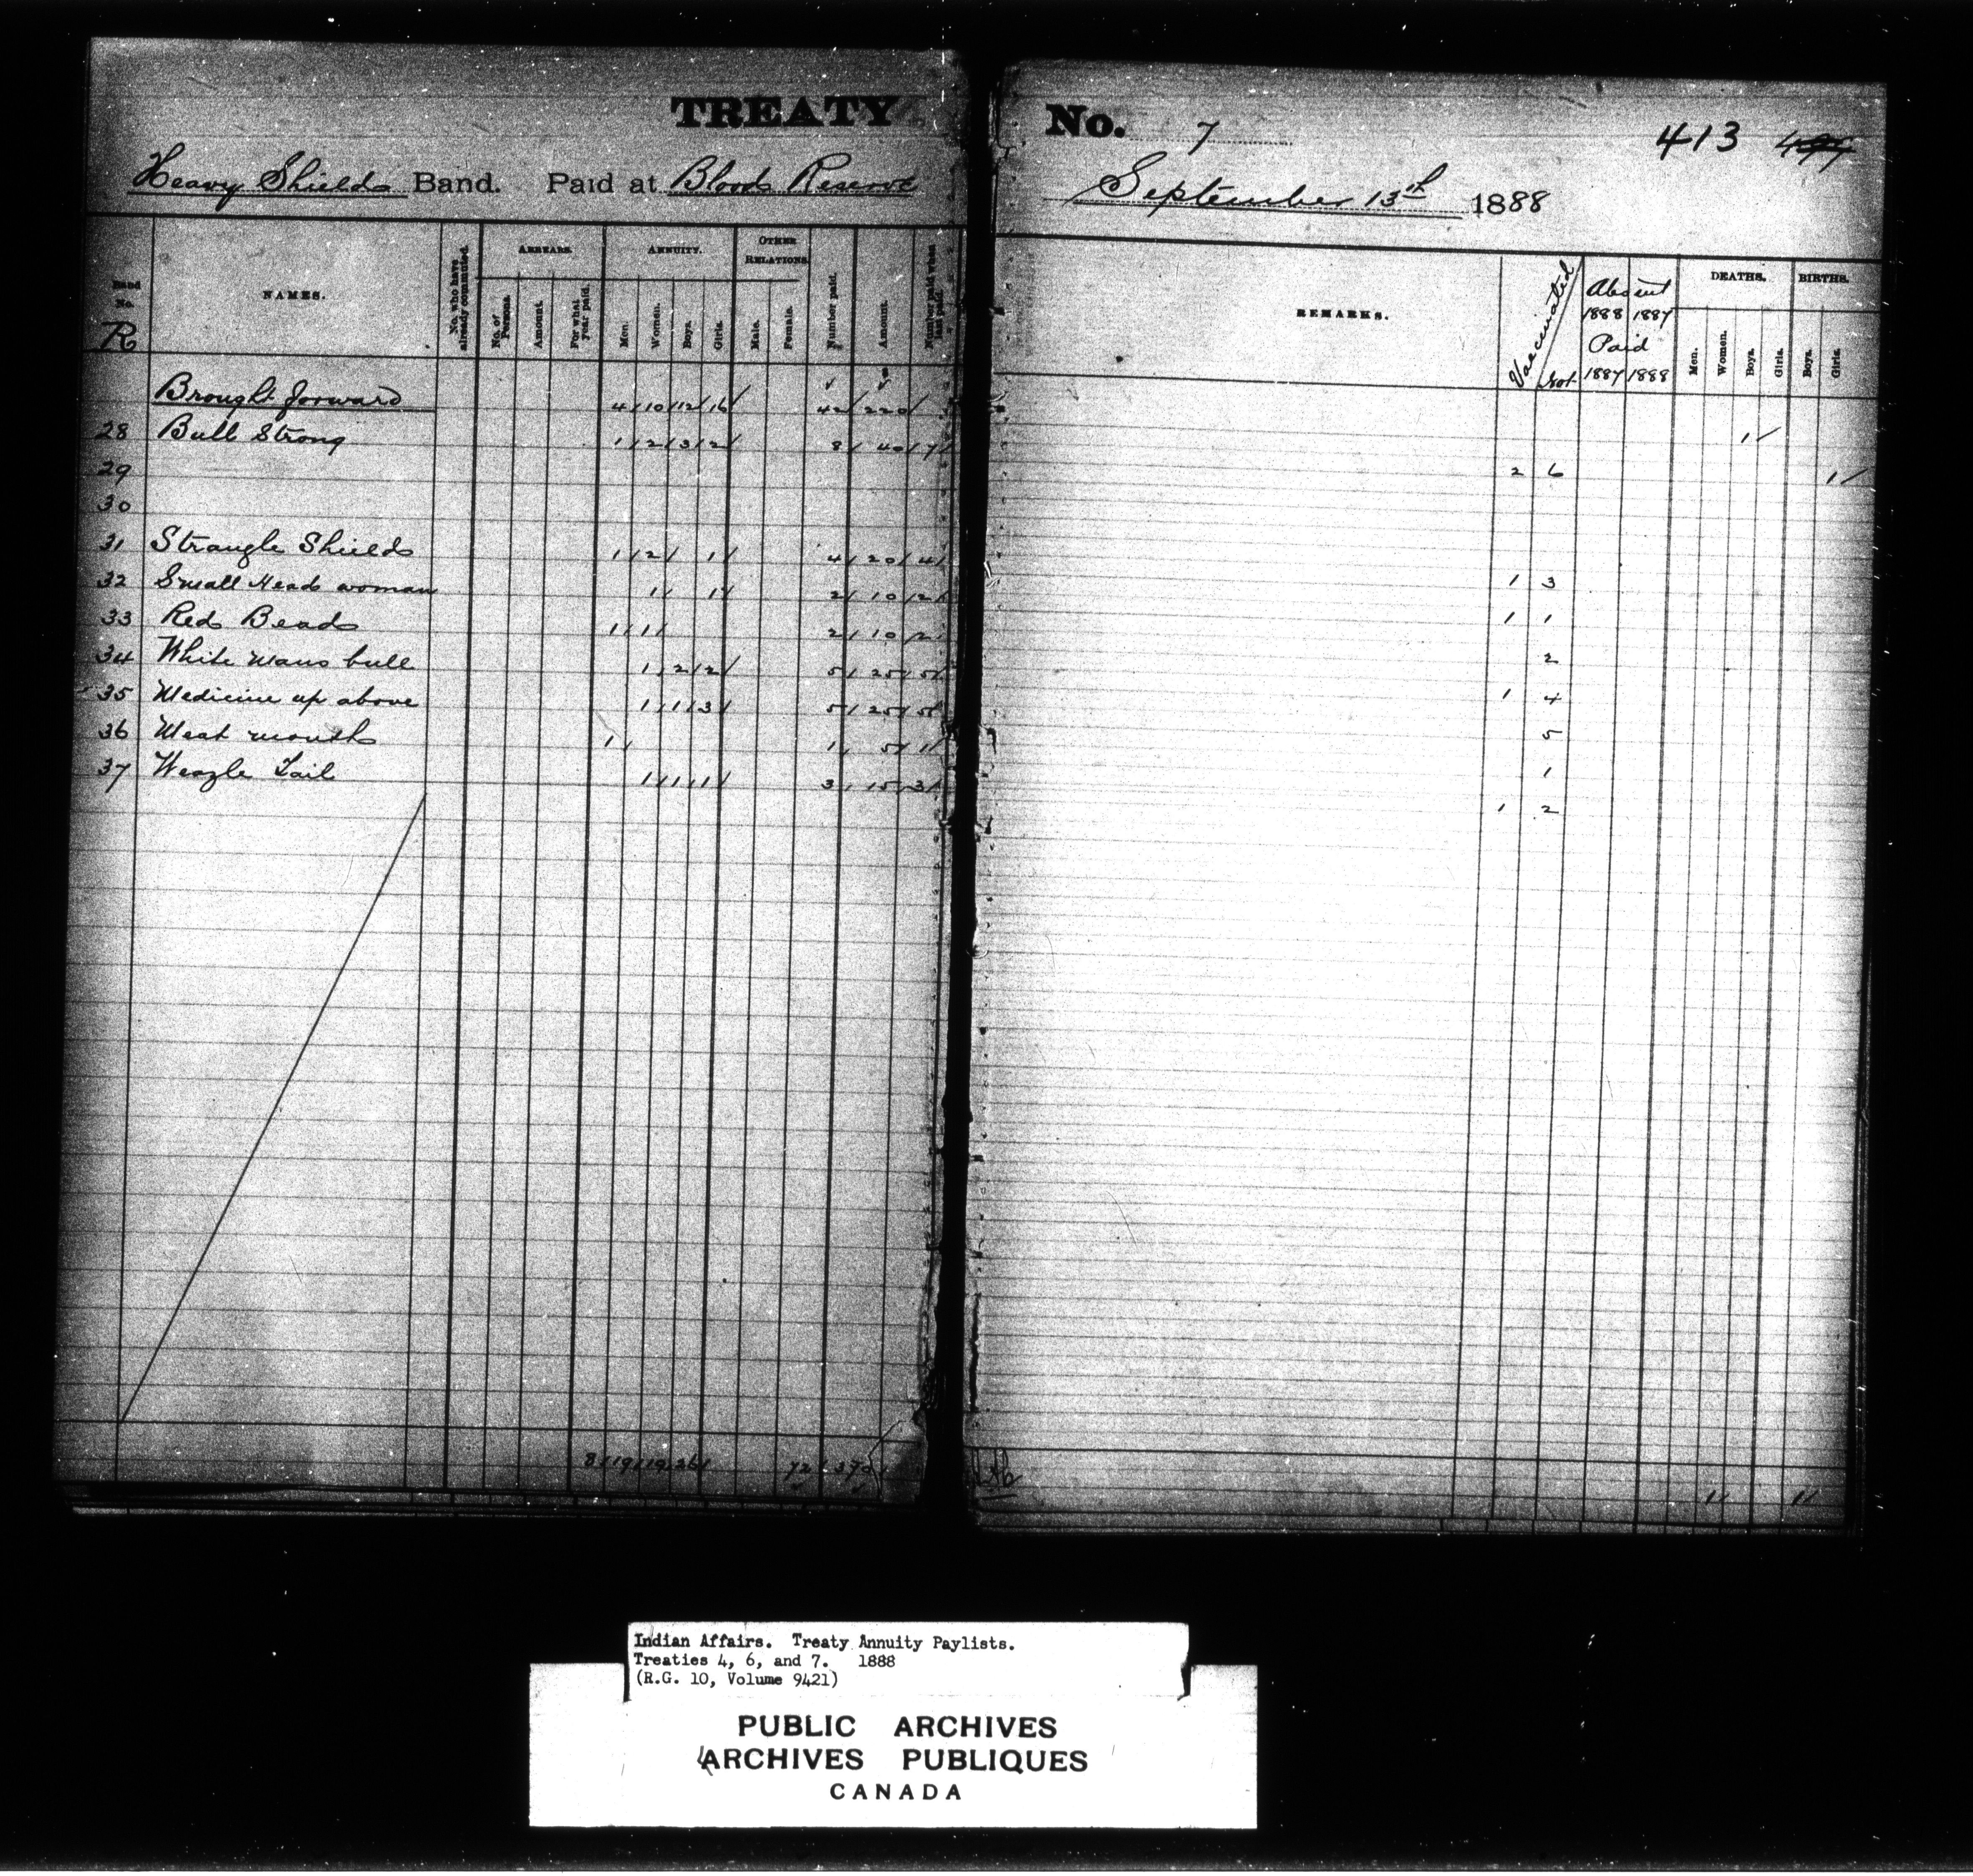 TREATY No. 7 413
Heavy Shields Band. Paid at Bloods Reserve September 13th 1888
Band No. R NAMES. No. who have already commuted. ARREARS. No. of Persons. Amount. For what year paid. ANNUITY. Men. Women. Boys. Girls. OTHER RELATIONS. Male. Female. Number paid. Amount. Number paid when last paid. REMARKS. Vaccinated Not Absent 1888 1887 Paid 1887 1888 DEATHS. Men. Women. Boys. Girls. BIRTHS. Boys. Girls.
Brought forward 4 10 12 16 42 220 1
28 Bull Strong 1 2 3 2 8 40 7 2 6 1
29
30
31 Strangle Shields 1 2 1 4 20 4 1 3
32 Small Head woman 1 1 2 10 2 1 1
33 Red Bead 1 1 2 10 2 2
34 White mans bull 1 2 2 5 25 5 1 4
35 Medicine up above 1 1 3 5 25 5 5
36 Meat mouth 1 1 5 1 1
37 Weazle Tail 1 1 1 3 15 3 1 2
8 19 19 26 72 370 1 1
Indian Affairs. Treaty Annuity Paylists.
Treaties 4, 6, and 7. 1888
(R.G. 10, Volume 9421)
PUBLIC ARCHIVES
ARCHIVES PUBLIQUES
CANADA